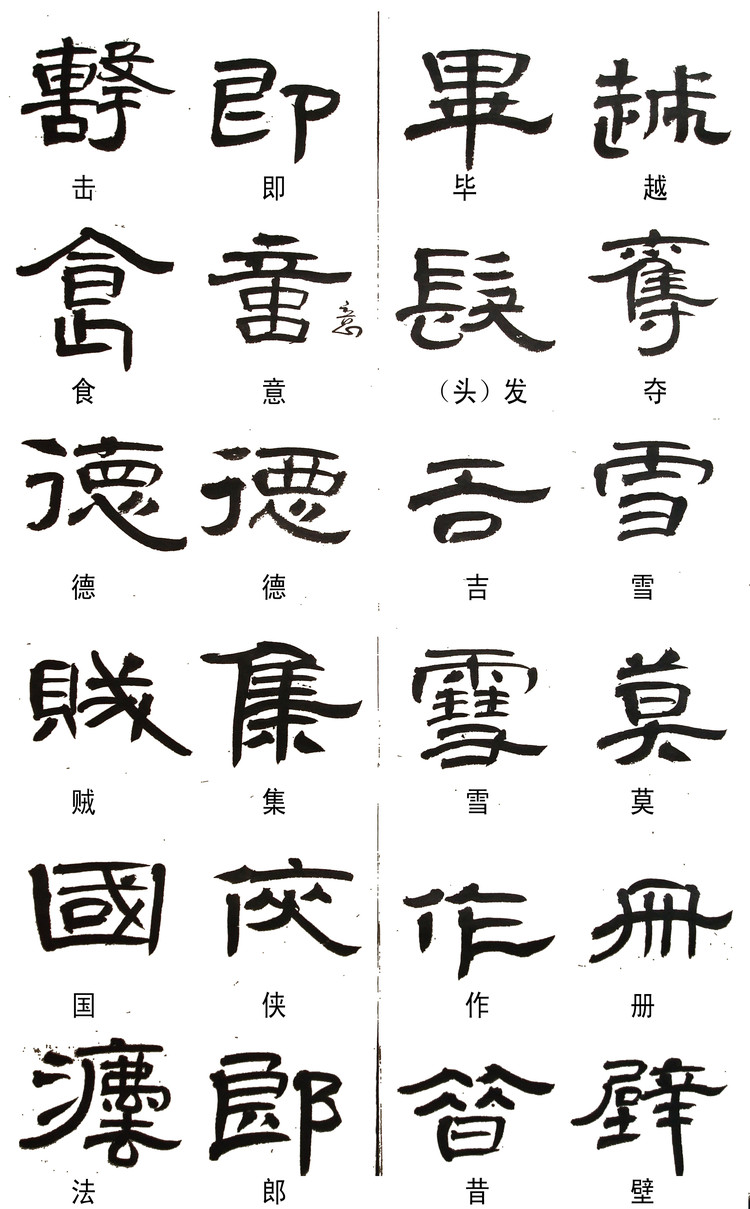 擊 即 畢 越
击 即 毕 越
食 意 意 髮 奪
食 意 （头）发 夺
德 德 吉 雪
德 德 吉 雪
賊 集 雪 莫
贼 集 雪 莫
國 俠 作 册
国 侠 作 册
灋 郎 昔 壁
法 郎 昔 壁